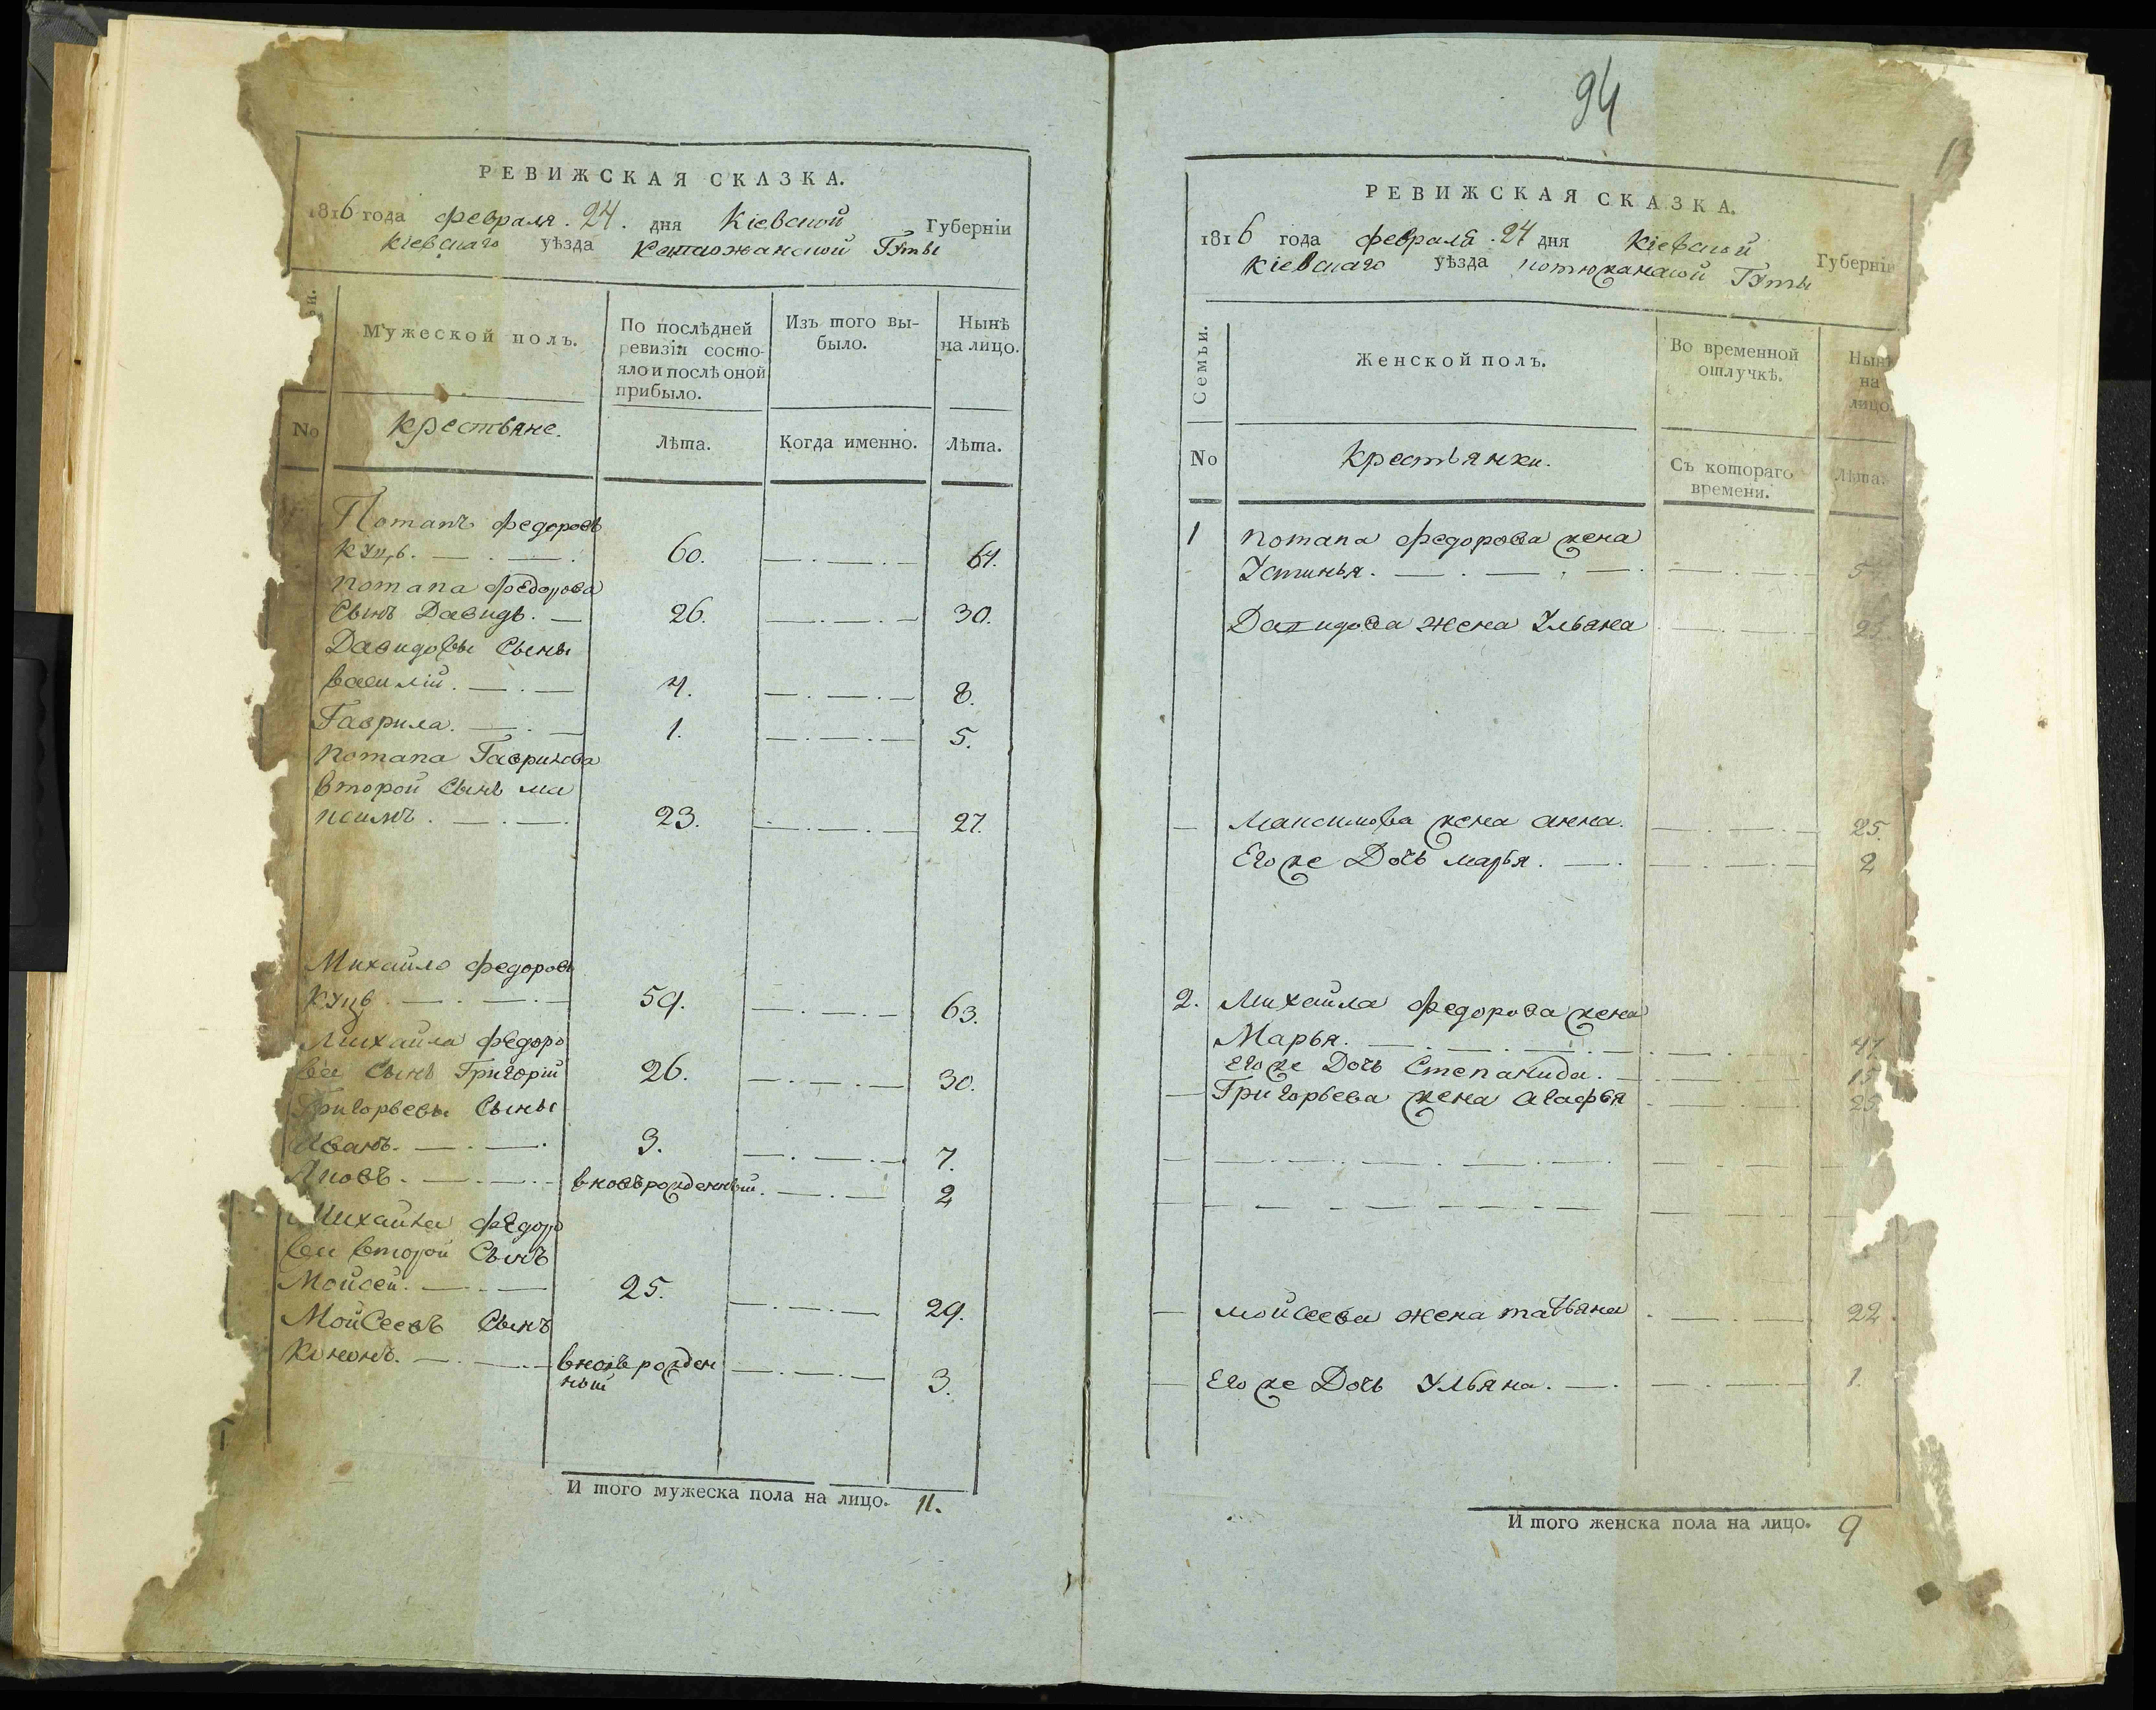 РЕВИЖСКАЯ СКАЗКА.
1816 года февраля . 24 . дня Кіевской Губерніи
Кіевскаго уѣзда Гуты
Мужеской полъ.
По послѣдней ревизіи состояло и послѣ оной прибыло.
Изъ того выбыло.
Нынѣ на лицо.
No
крестьяне.
Лѣта.
Когда именно.
Лѣта.
Потапъ федоровъ
60. 64.
потапа федорова
Сынъ Давидъ. 26. 30.
Давидовы Сыны
василій. 4. 8.
Гаврила. 1. 5.
потапа Гаврилова
второй Сынъ ма
ксимъ. 23. 27.
Михайло федоровъ
59. 63.
Михайла федоро
ва Сынъ Григорій 26. 30.
Григорьевы Сыны
Иванъ. 3. 7.
Яковъ. вновьрожденный. 2
Михайла федоро
ва второй Сынъ
Мойсей. 25. 29.
Мойсеевъ Сынъ
Кононъ. вновьрожден
ный 3.
И того мужеска пола на лицо. 11.
94
РЕВИЖСКАЯ СКАЗКА.
1816 года февраля . 24 дня Кіевской Губерніи
Кіевскаго уѣзда Гуты
Семьи.
Женской полъ.
Во временной отлучкѣ.
Нынѣ на лицо.
No
Крестьянки.
Съ котораго времени.
Лѣта.
1 потапа федорова жена
Устинья.
Давидова жена Ульяна
Максимова жена анна. 25.
Его же Дочь марья. 2
2. Михайла федорова жена
Марья.
его же Дочь Степанида. 15
Григорьева жена агафья 25
мойсеева жена татьяна 22.
Его же Дочь Ульяна. 1.
И того женска пола на лицо. 9